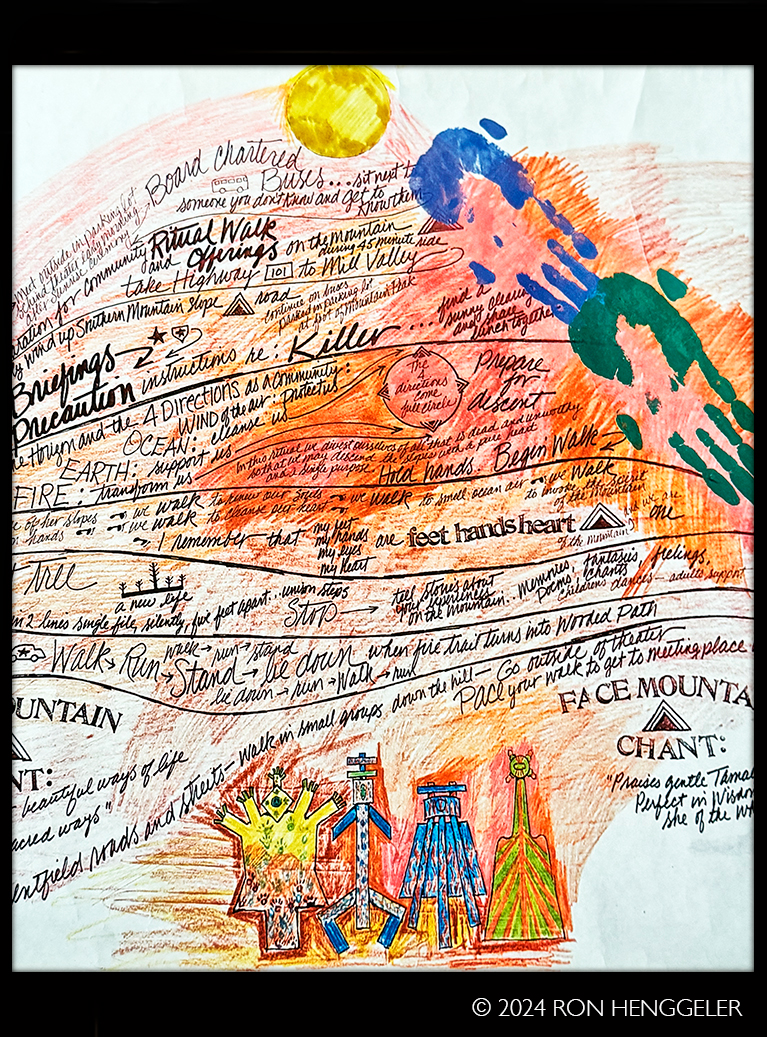 Board chartered
Buses... sit next to
someone you don't know and get to
know them
meet outside in parking lot
behind theater
after Sunrise Ceremony
for community
Ritual Walk
and Offerings on the Mountain
during 45 minute ride
take Highway 101 to Mill Valley
wind up Southern Mountain Slope road
continue on buses
parked in parking lot
at foot of Mountain Park
Briefings
Precaution instructions re: Killer... find a
sunny clearing
and share
lunch together
and the 4 DIRECTIONS as a community:
WIND of the air: protect us
OCEAN: cleanse us
EARTH: support us
FIRE: transform us
The
4 directions
come
full circle
Prepare
for
descent
In this ritual we divest ourselves of all that is dead and unworthy
so that we may descend the slopes with a pure heart
and a single purpose
Hold hands. Begin Walk
of her slopes we walk to know our souls we walk to small ocean air we walk
hands we walk to change our heart to invoke the spirit
of the mountain
I remember that my feet
my hands
my eyes
my heart
are feet hands heart
of the mountain
and we are
one
tree
a new life
in 2 lines single file, silently, five feet apart... union steps
Stop → tell stories about
your
on the mountain... Memories, fantasies, feelings,
Poems, chants
Childrens dances — adults support
Walk → Run → Stand → lie down when fire trail turns into Wooded Path
walk → run → stand
lie down → run → Walk → run
down the hill — Go outside of theater
Pace your walk to get to meeting place
UNTAIN
NT:
beautiful ways of life
acred ways"
entfield roads and streets — Walk in small groups
FACE MOUNTA
CHANT:
"Praises gentle Tamal
Perfect in Wisdom
she of the W
© 2024 RON HENGGELER